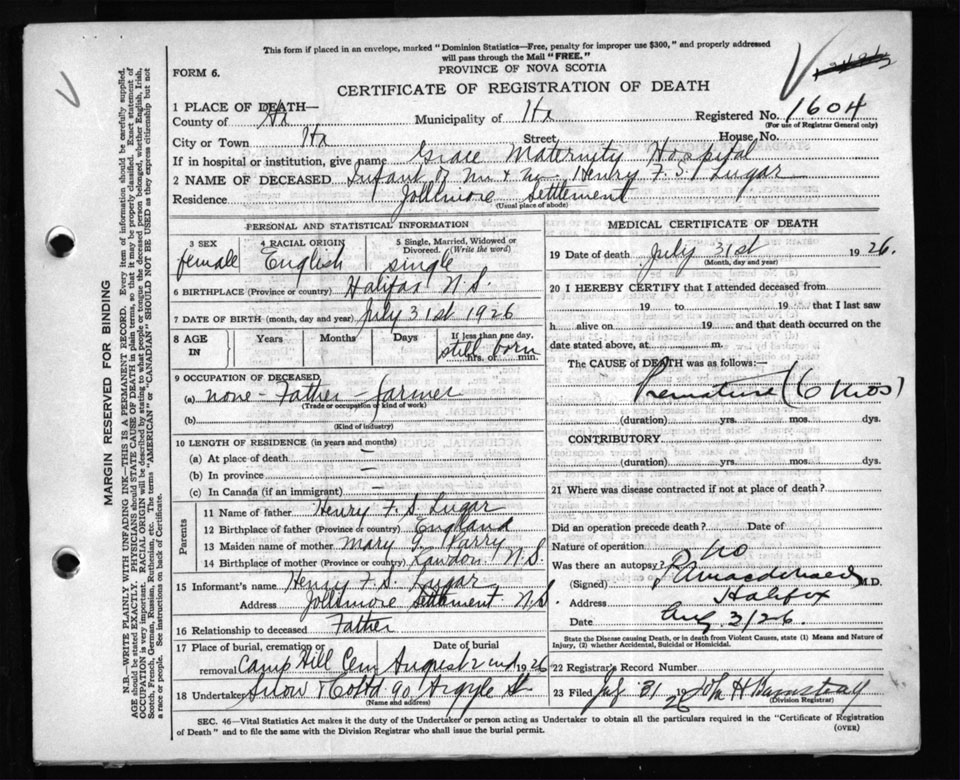 This form if placed in an envelope, marked "Dominion Statistics—Free, penalty for improper use $300," and properly addressed
will pass through the Mail "FREE."
PROVINCE OF NOVA SCOTIA
FORM 6.
CERTIFICATE OF REGISTRATION OF DEATH
1 PLACE OF DEATH—
County of Hx Municipality of Hx Registered No. 1604
(For use of Registrar General only)
City or Town Hx Street House No.
If in hospital or institution, give name Grace Maternity Hospital
2 NAME OF DECEASED Infant of Mr + Mrs. Henry F. S. Lugar
Residence Jollimore Settlement
(Usual place of abode)
PERSONAL AND STATISTICAL INFORMATION
3 SEX 4 RACIAL ORIGIN 5 Single, Married, Widowed or Divorced. (Write the word)
female English single
6 BIRTHPLACE (Province or country) Halifax N.S.
7 DATE OF BIRTH (month, day and year) July 31st 1926
8 AGE IN Years Months Days If less than one day,
still born
hrs. or min.
9 OCCUPATION OF DECEASED
(a) none - Father - farmer
(Trade or occupation or kind of work)
(b)
(Kind of industry)
10 LENGTH OF RESIDENCE (in years and months)
(a) At place of death —
(b) In province —
(c) In Canada (if an immigrant) —
Parents
11 Name of father Henry F. S. Lugar
12 Birthplace of father (Province or country) England
13 Maiden name of mother Mary G. Parry
14 Birthplace of mother (Province or country) Rawdon N.S.
15 Informant's name Henry F. S. Lugar
Address Jollimore Settlement N.S.
16 Relationship to deceased Father
17 Place of burial, cremation or removal Date of burial
Camp Hill Cem August 2nd 1926
18 Undertaker Snow & Co Ltd 90 Argyle St
(Name and address)
MEDICAL CERTIFICATE OF DEATH
19 Date of death July 31st 1926.
(Month, day and year)
20 I HEREBY CERTIFY that I attended deceased from
19 to 19 that I last saw
h alive on 19 and that death occurred on the
date stated above, at m.
The CAUSE of DEATH was as follows:
Premature (6 mos)
(duration) yrs. mos. dys.
CONTRIBUTORY
(duration) yrs. mos. dys.
21 Where was disease contracted if not at place of death?
Did an operation precede death? Date of
Nature of operation
Was there an autopsy? No
(Signed) Macdonald M.D.
Address Halifax
Date Aug 2/26.
State the Disease causing Death, or in death from Violent Causes, state (1) Means and Nature of
Injury, (2) whether Accidental, Suicidal or Homicidal.
22 Registrar's Record Number
23 Filed 31 1926 John H
(Division Registrar)
SEC. 46—Vital Statistics Act makes it the duty of the Undertaker or person acting as Undertaker to obtain all the particulars required in the "Certificate of Registration
of Death" and to file the same with the Division Registrar who shall issue the burial permit.
(OVER)
MARGIN RESERVED FOR BINDING
N.B.—WRITE PLAINLY WITH UNFADING INK—THIS IS A PERMANENT RECORD. Every item of information should be carefully supplied.
AGE should be stated EXACTLY. PHYSICIANS should STATE CAUSE OF DEATH in plain terms, so that it may be properly classified. Exact statement of
OCCUPATION is very important. RACIAL ORIGIN will be described by stating to what people or tongue the deceased person belonged, whether English, Irish,
Scotch, French, German, Russian, Ruthenian, etc. The terms "AMERICAN" or "CANADIAN" SHOULD NOT BE USED as they express citizenship but not
a race or people. See instructions on back of Certificate.